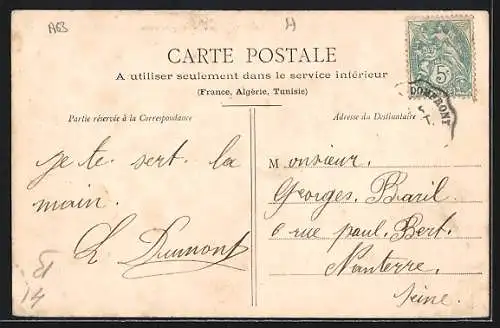 A63
H
CARTE POSTALE
A utiliser seulement dans le service intérieur
(France, Algérie, Tunisie)
Partie réservée à la Correspondance
Adresse du Destinataire
5c
DOMFRONT
je te sert la
main.
L Dumont
Monsieur.
Georges. Baril.
6 rue paul. Bert.
Nanterre.
Seine.
51
14